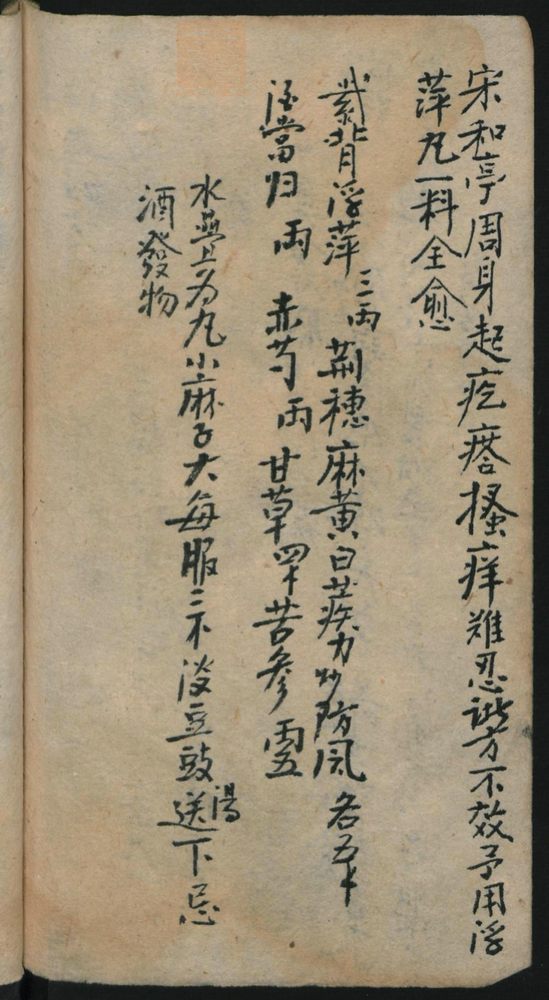 宋和亭周身起疙瘩搔痒难忍诸方不效予用浮
萍丸一料全愈
紫背浮萍三两荆穗麻黄白芷疾力炒防风各五
酒当归两 赤芍两甘草苦参
水叠为丸小麻子大每服二 淡豆豉湯送下忌
酒發物